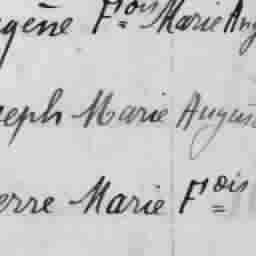 gène Fois Marie Aug
seph Marie August
erre Marie Fois